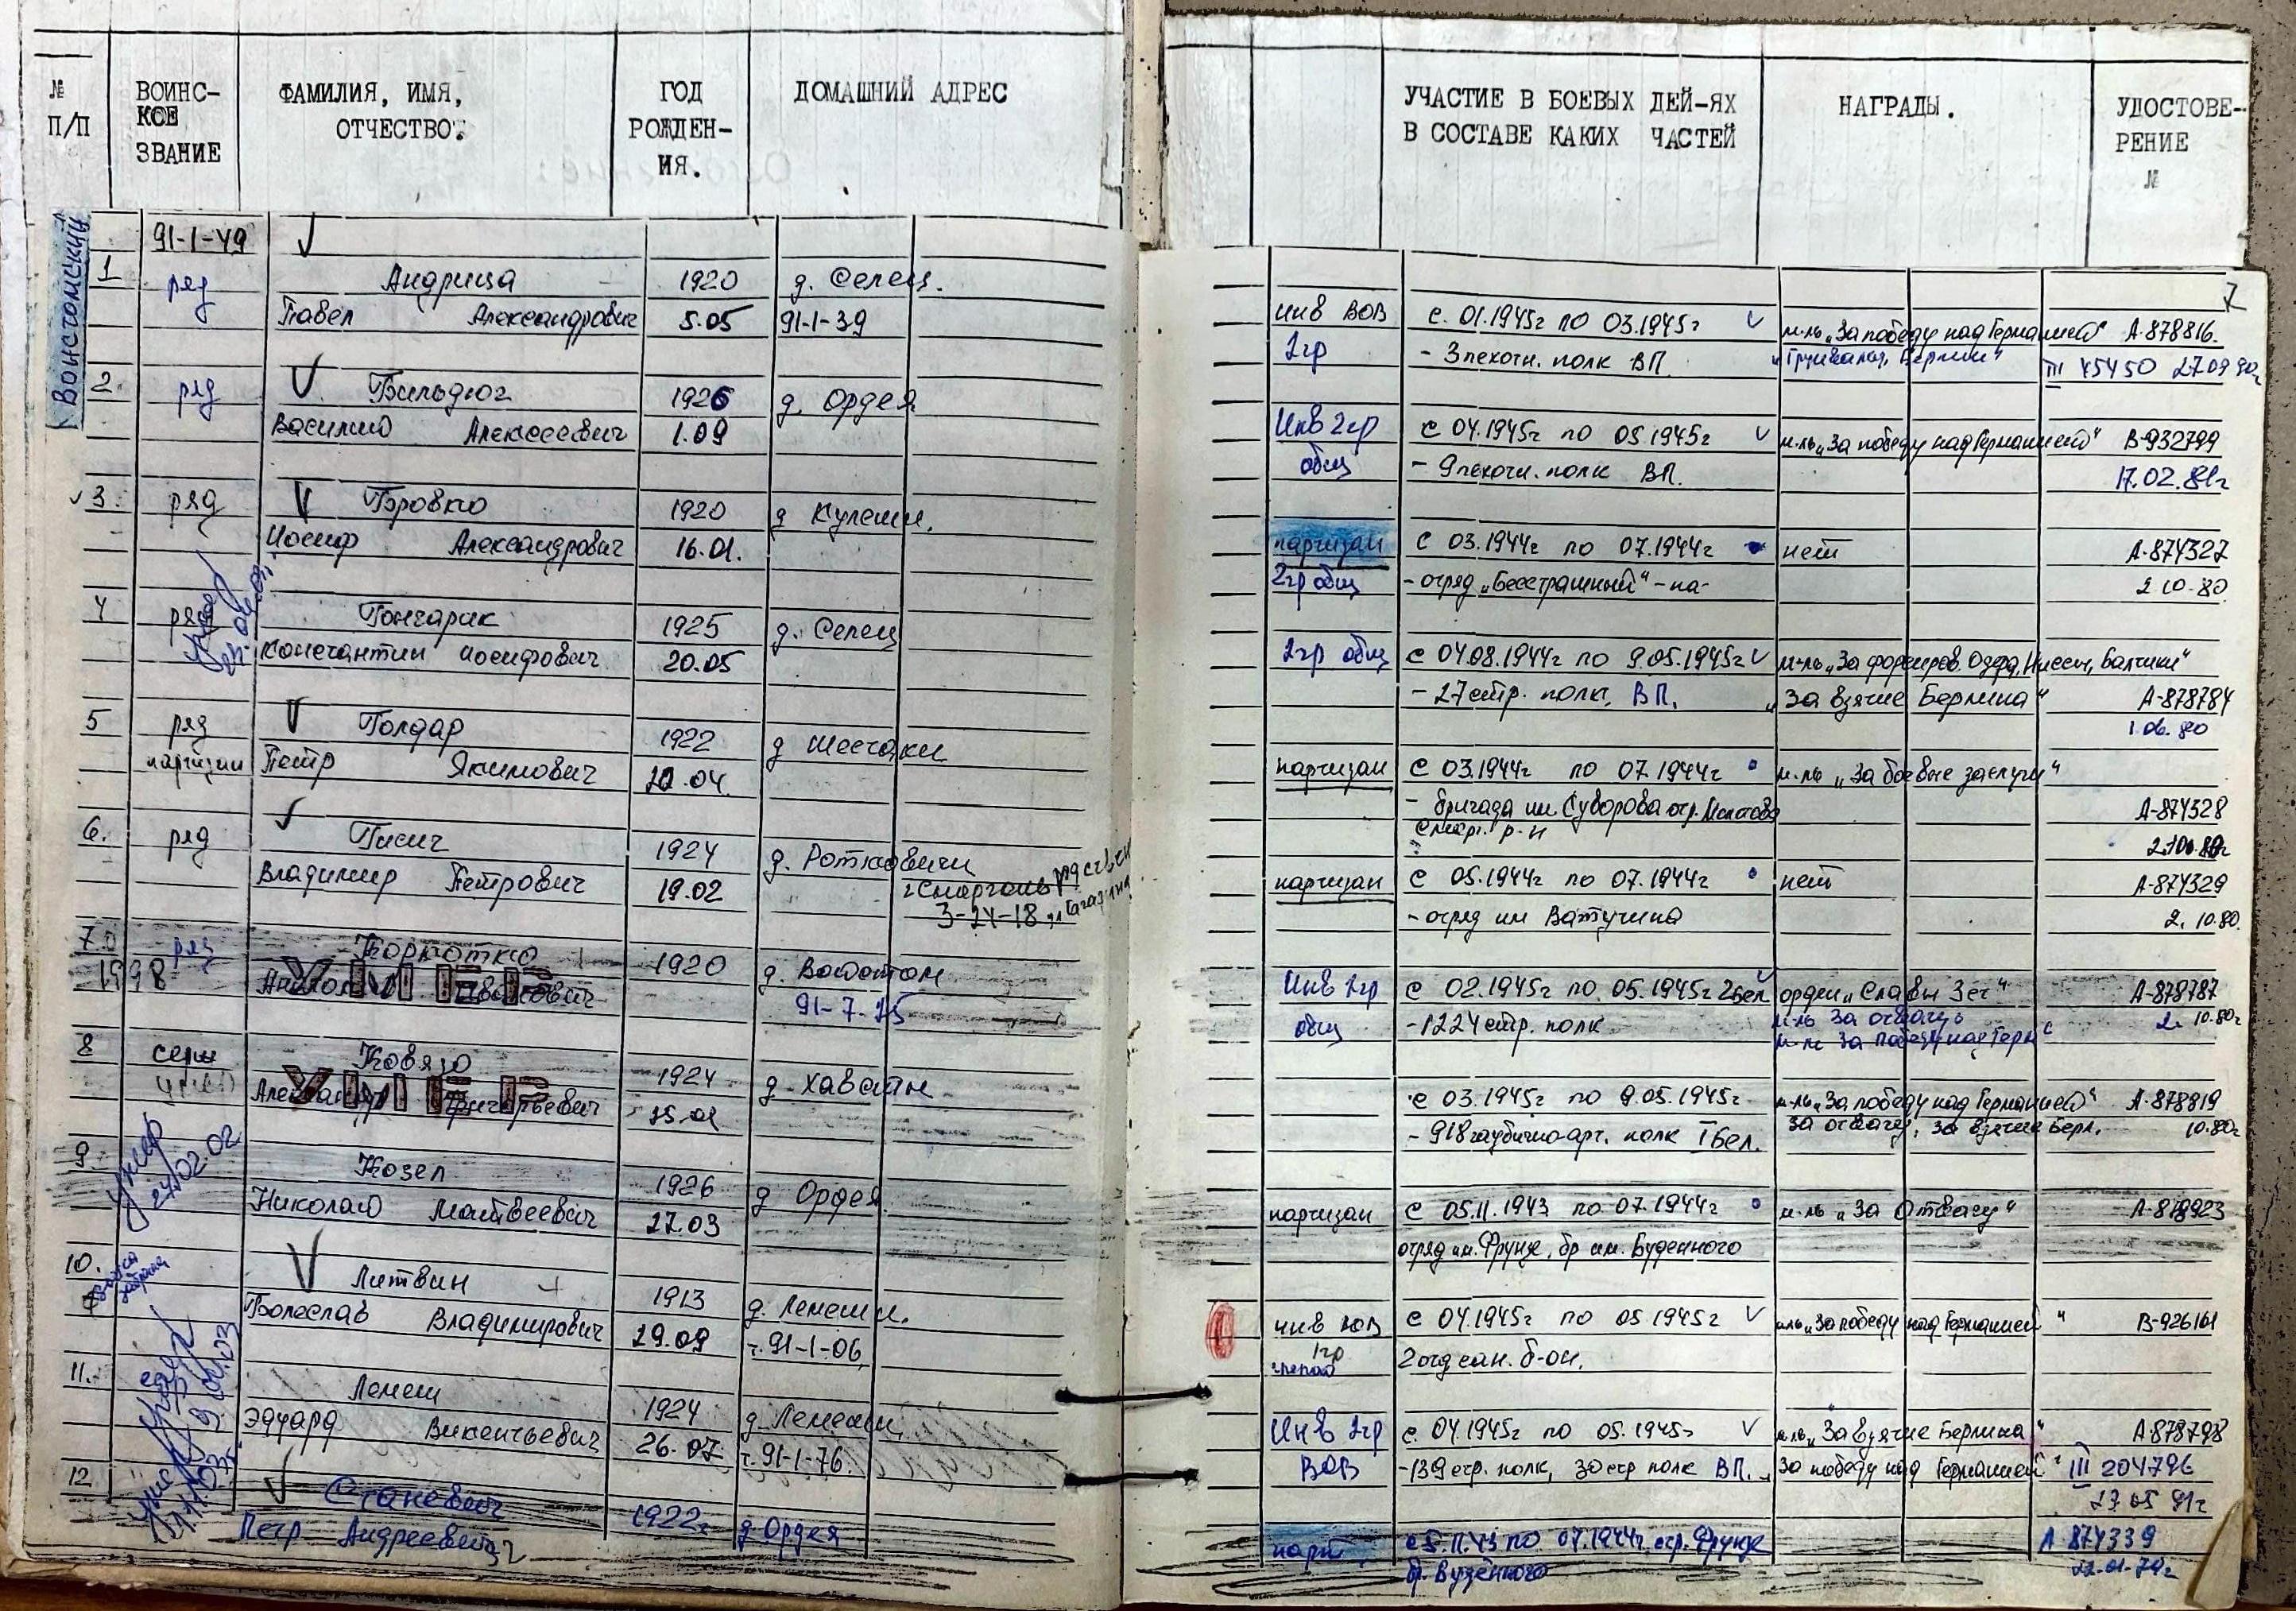 № П/П
ВОИНС-КОЕ ЗВАНИЕ
ФАМИЛИЯ, ИМЯ, ОТЧЕСТВО.
ГОД РОЖДЕН-ИЯ.
ДОМАШНИЙ АДРЕС
УЧАСТИЕ В БОЕВЫХ ДЕЙ-ЯХ В СОСТАВЕ КАКИХ ЧАСТЕЙ
НАГРАДЫ.
УДОСТОВЕ-РЕНИЕ №
7
Войстомский
91-1-49
1 ряд Андрица 1920 д. Селец.
Павел Александрович 5.05 91-1-39
инв ВОВ с. 01.1945г по 03.1945г м-ль „За победу над Германией" А-878816.
2гр - 3 пехотн. полк ВП. „Грюнвальд, Берлин" III 45450 27.09.90г
2. ряд Бильдюг 1926 д. Ордея
Василий Алексеевич 1.09
Инв 2гр с 04.1945г по 05.1945г м-ль „За победу над Германией" В-932799
общ - 9 пехотн. полк ВП. 17.02.81г
3. ряд Бровко 1920 д Кулеши.
Иосиф Александрович 16.01.
партизан с 03.1944г по 07.1944г нет А-874327
2гр общ - отряд „Бесстрашный" 2.10.80
4 ряд Гончарик 1925 д. Селец
Константин Иосифович 20.05
2гр общ с 04.08.1944г по 9.05.1945г м-ль „За форсиров. Одера, Ниссы, Балтики"
- 27 стр. полк. ВП. „За взятие Берлина" А-878784
1.06.80
5 ряд Голдар 1922 д Шестаки
партизан Петр Якимович .04.
партизан с 03.1944г по 07.1944г м-ль „За боевые заслуги"
- бригада им Суворова отр. Молотова А-874328
Сморг. р-н
6. ряд Гисич 1924 д. Ротковичи
Владимир Петрович 19.02 г Сморгонь
3-24-18
партизан с 05.1944г по 07.1944г нет А-874329
- отряд им Ватутина 2.10.80.
7. ряд 1920 д. Войстом
1998 УМЕР 91-7-25
Инв 2гр с 02.1945г по 05.1945г 2бел орден „Славы 3ст" А-878787
общ - 1224 стр. полк м-ль За отвагу 2. 10.80г
м-ль За победу над Герм
8 серж Ковязо 1924 д. Хавсты
Александр Григорьевич УМЕР
с 03.1945г по 9.05.1945г м-ль „За победу над Германией" А-878819
- 918 гаубично-арт. полк I Бел. За отвагу, За взятие Берл. 10.80г
умер 24.02.02
9. Козел 1926 д Ордея
Николай Матвеевич 27.03
партизан с 05.11.1943 по 07.1944г м-ль „За Отвагу"
отряд им. Фрунзе, бр им. Буденного
10. Литвин 1913 д. Лемеши.
Болеслав Владимирович 29.09 т. 91-1-06
инв ВОВ с 04.1945г по 05.1945г м-ль „За победу над Германией" В-926161
1гр слепой 2 отд сан. б-он.
11. Лемеш 1924 д. Лемеши
Эдуард Викентьевич 26.07 т. 91-1-76.
Инв 2гр с. 04.1945г по 05.1945г м-ль „За взятие Берлина" А-878798
ВОВ - 139 стр. полк, 30 стр полк ВП. „За победу над Германией" III 204796
05 91г
12 Станевич 1922г д Ордея
Петр Андреевич
парт с 5.11.43 по 07.1944г. отр. Фрунзе А 874339
бр. Буденного